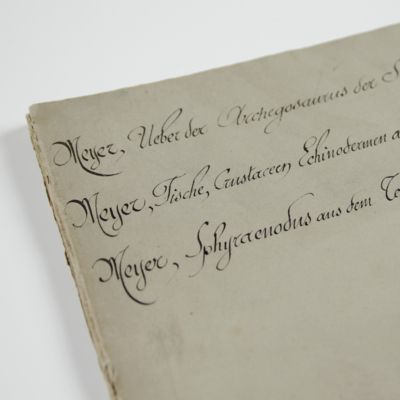 Meyer, Ueber der Archegosaurus der S
Meyer, Fische, Crustaceen Echinodermen a
Meyer, Sphyraenodus aus dem Te